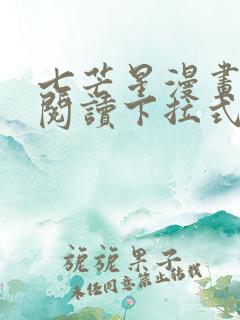 七芒星漫畫
閱讀下拉式
旎旎果子
未经同意禁止转载